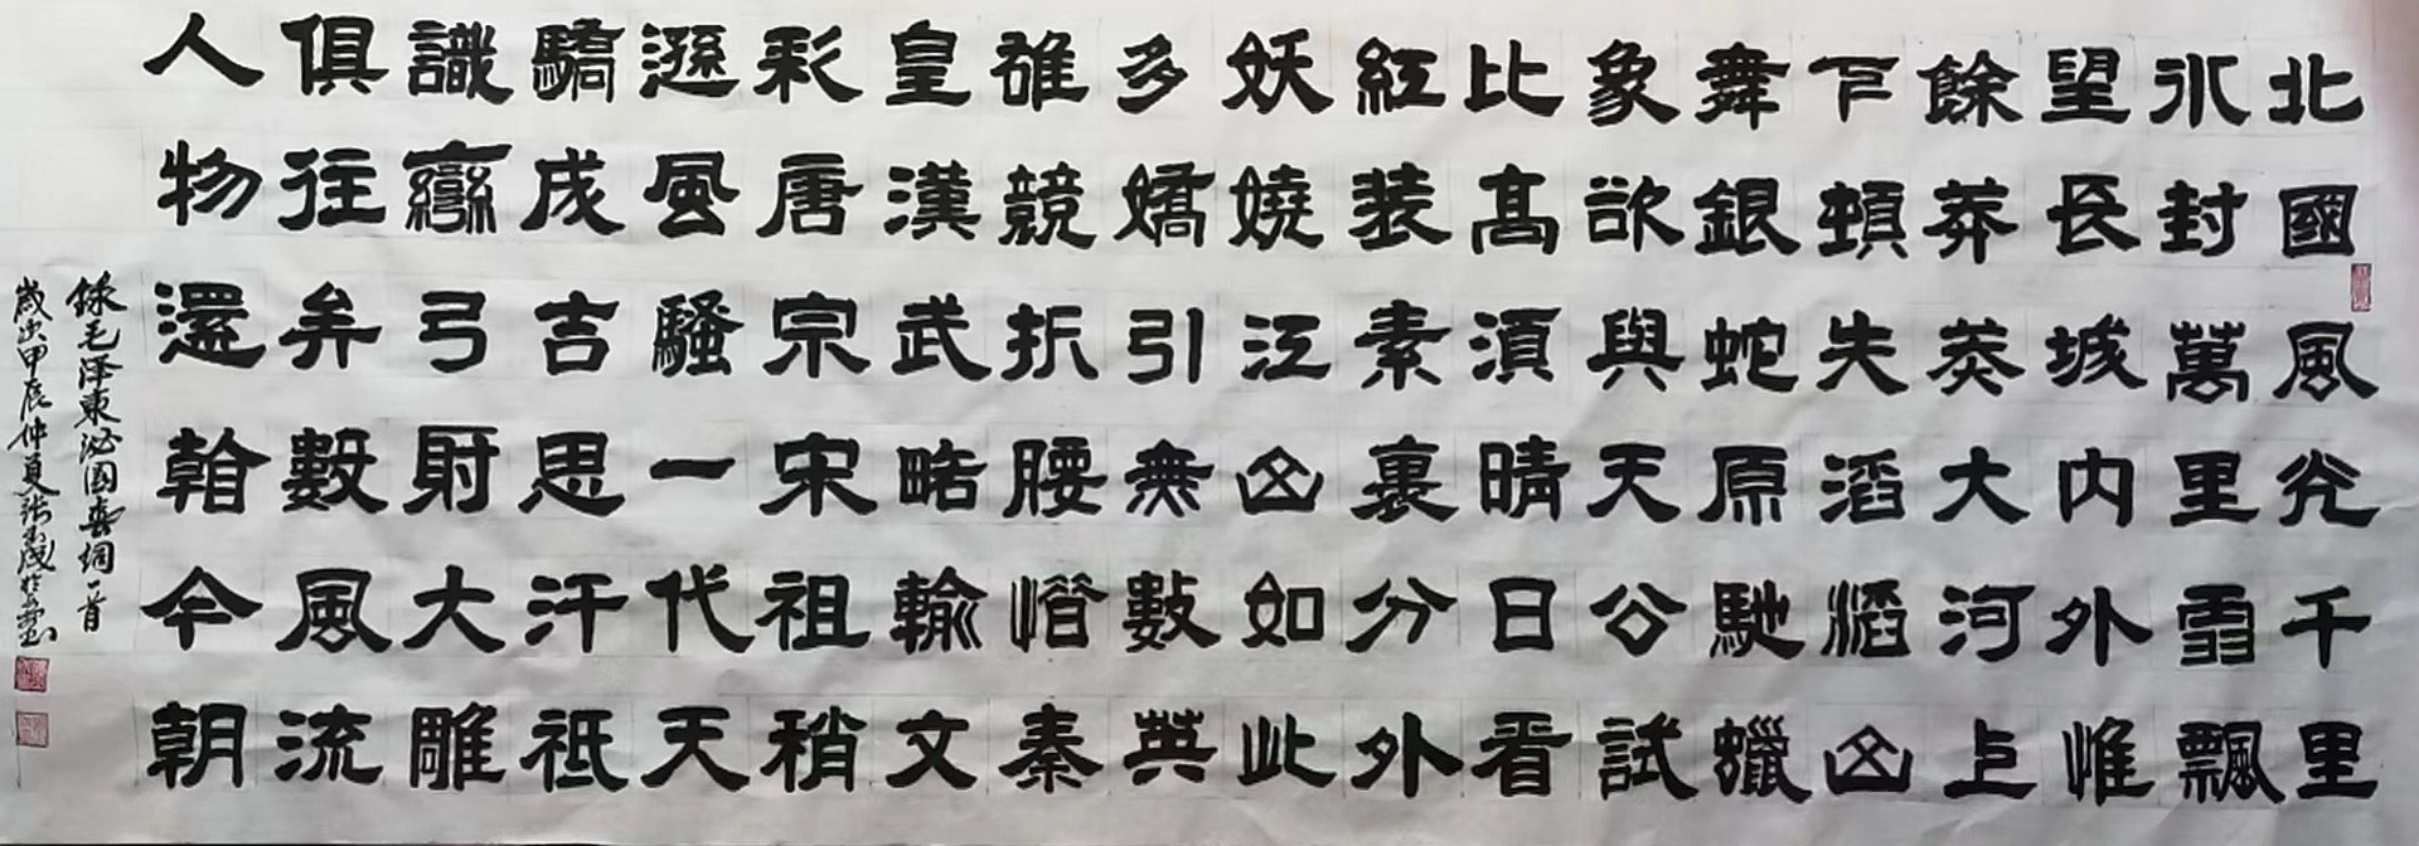 北國風光千里
冰封萬里雪飄
望長城内外惟
餘莽莽大河上
下頓失滔滔山
舞銀蛇原馳蠟
象欲與天公試
比髙須晴日看
紅裝素裹分外
妖嬈江山如此
多嬌引無數英
雄競折腰惜秦
皇漢武略輸文
彩唐宗宋祖稍
遜風騷一代天
驕成吉思汗祇
識彎弓射大雕
俱往矣數風流
人物還看今朝
錄毛泽東沁園春詞一首
歲次甲辰仲夏張玉成於